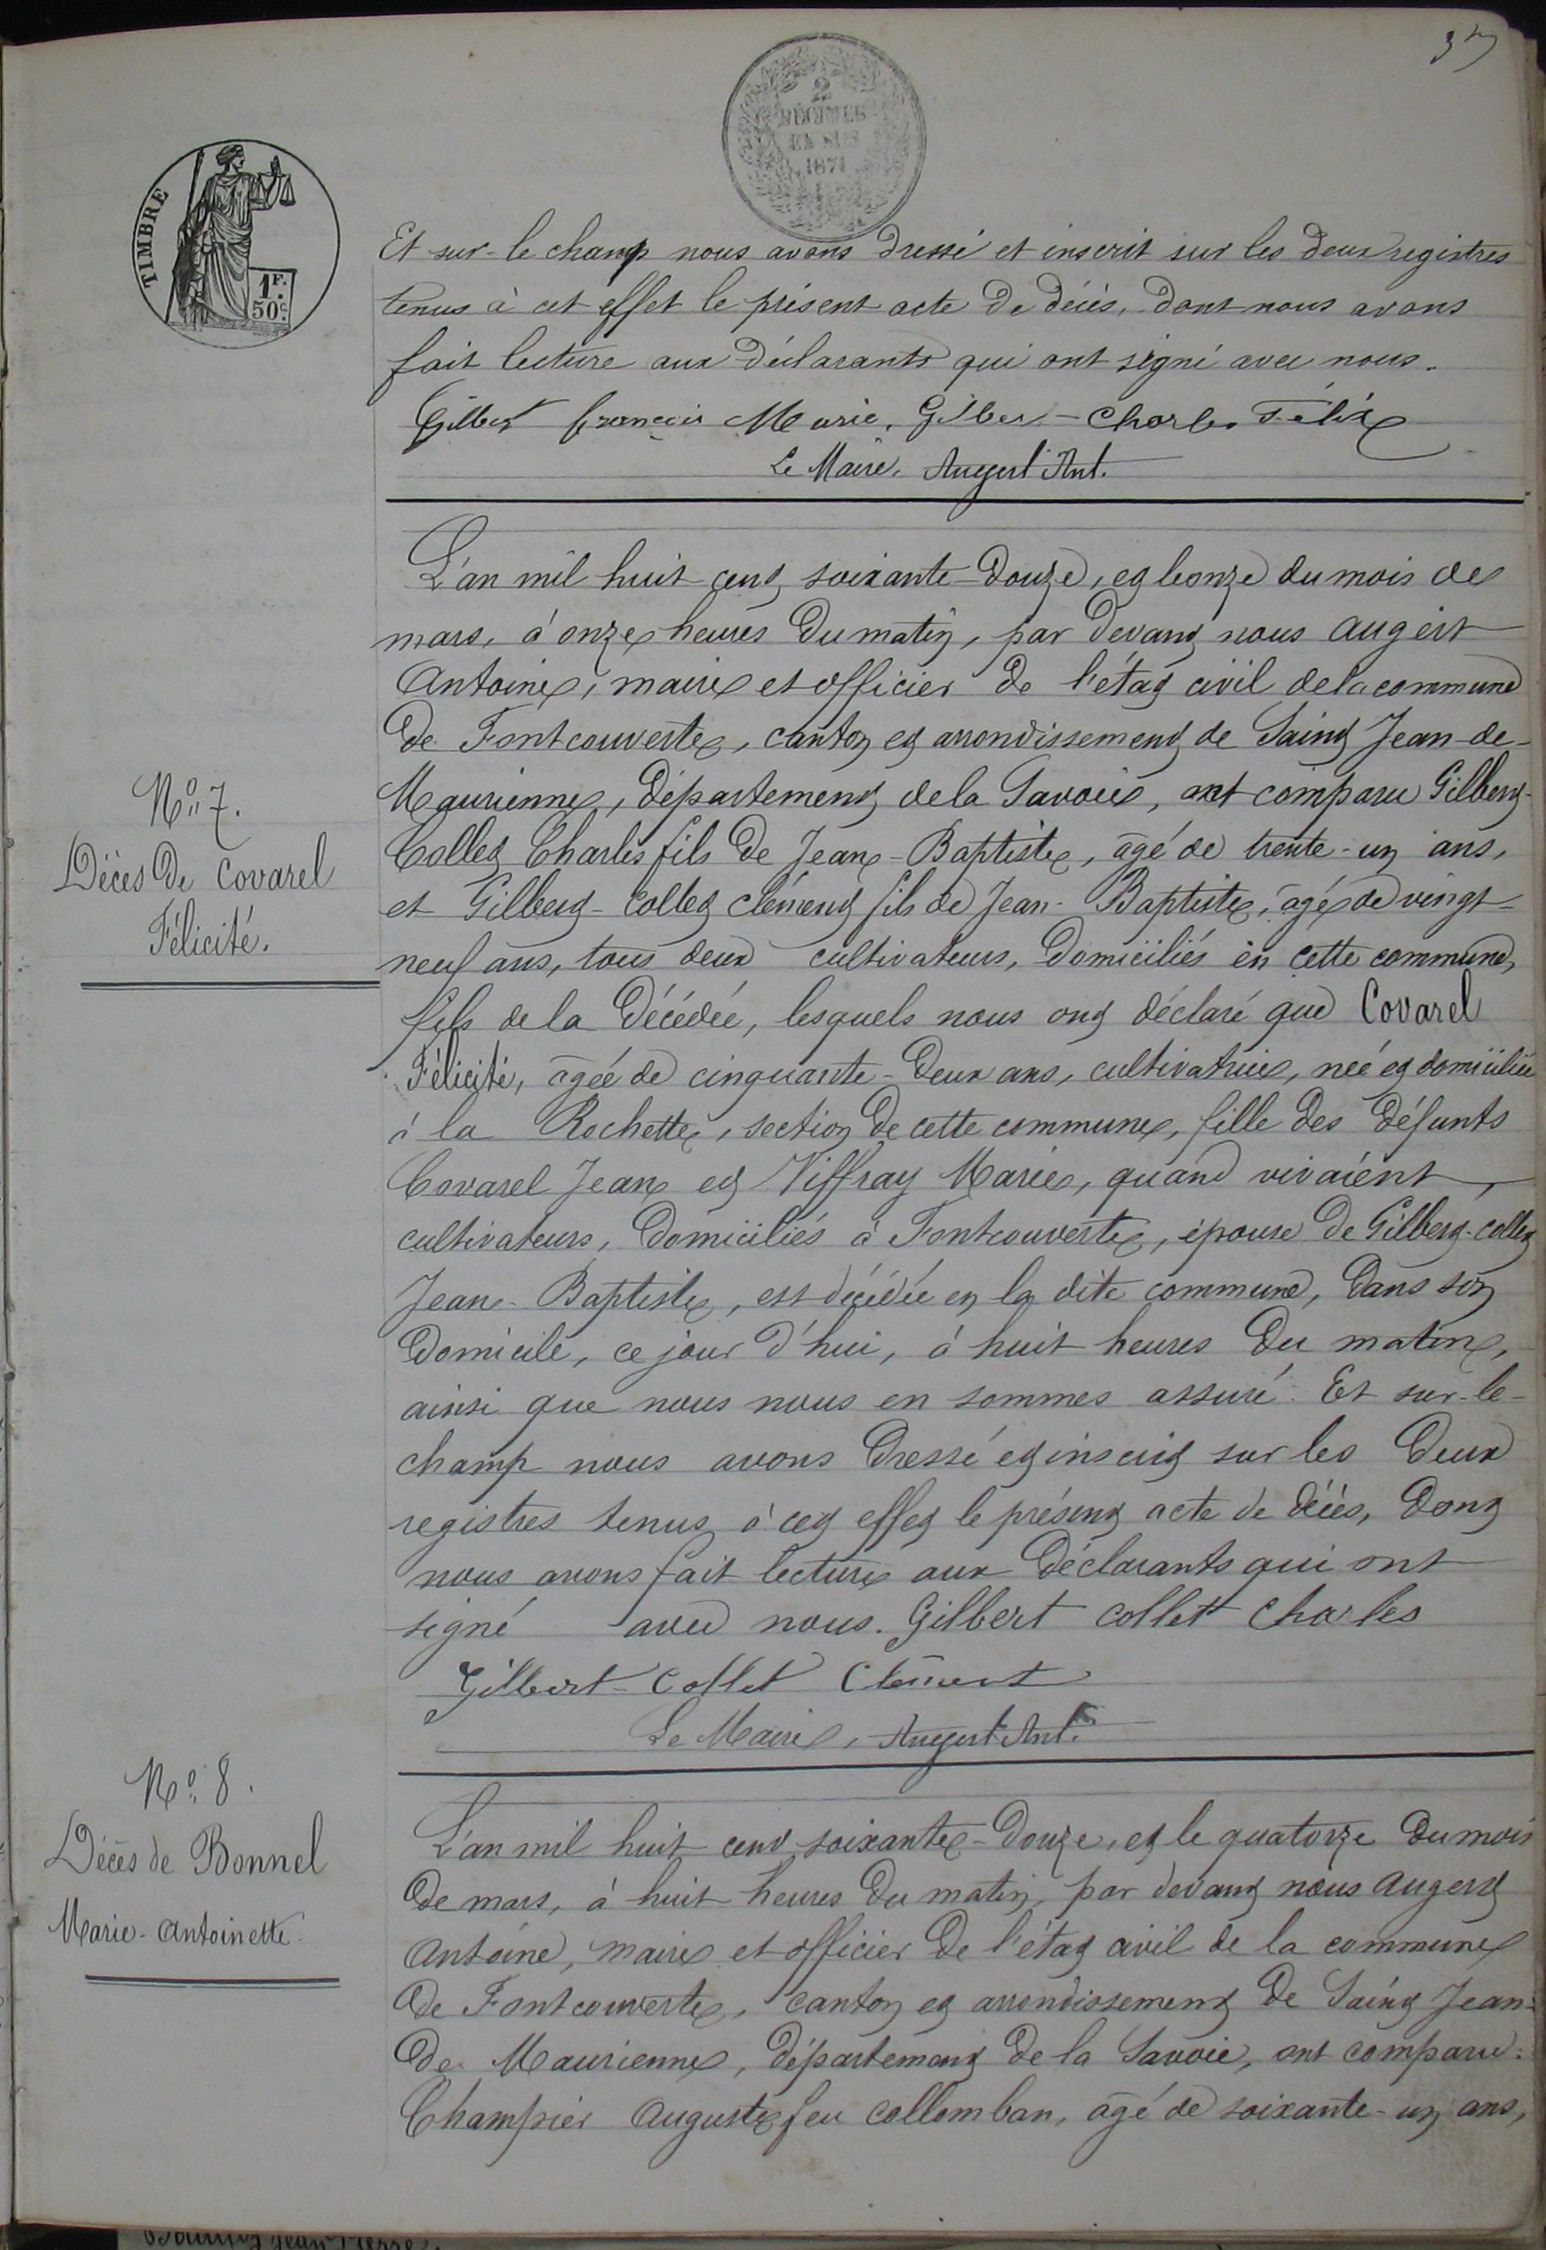 37
2
DÉCIMES
EN SUS
1871
TIMBRE
1F.
50c.
Et sur-le champ nous avons dressé et inscrit sur les deux registres
tenus à cet effet le présent acte de décès, dont nous avons
fait lecture aux déclarants qui ont signé avec nous.
Gilbert françois Marie. Gilber - Charles Félix
Le Maire, Augert Ant.
L'an mil huit cent soixante-douze, et le onze du mois de
mars, à onze heures du matin, par devant nous Augert
Antoine, maire et officier de l'état civil de la commune
de Fontcouverte, canton et arrondissement de Saint Jean-de-
Maurienne, département de la Savoie, ont comparu Gilbert-
Collet Charles fils de Jean-Baptiste, âgé de trente-un ans,
et Gilbert-Collet Clément fils de Jean-Baptiste, âgé de vingt-
neuf ans, tous deux cultivateurs, domiciliés en cette commune,
fils de la décédée, lesquels nous ont déclaré que Covarel
Félicité, âgée de cinquante-deux ans, cultivatrice, née et domiciliée
à la Rochette, section de cette commune, fille des défunts
Covarel Jean et Viffray Marie, quand vivaient,
cultivateurs, domiciliés à Fontcouverte, épouse de Gilbert-Collet
Jean-Baptiste, est décédée en la dite commune, dans son
domicile, ce jour d'hui, à huit heures du matin,
ainsi que nous nous en sommes assuré. Et sur-le-
champ nous avons dressé et inscrit sur les deux
registres tenus à cet effet le présent acte de décès, dont
nous avons fait lecture aux déclarants qui ont
signé avec nous. Gilbert collet Charles
Gilbert-Collet Clément
Le Maire, Augert Ant.
No. 7.
Décès de Covarel
Félicité.
No. 8.
Décès de Bonnel
Marie-Antoinette.
L'an mil huit cent soixante-douze, et le quatorze du mois
de mars, à huit heures du matin, par devant nous Augert
Antoine, maire et officier de l'état civil de la commune
de Fontcouverte, canton et arrondissement de Saint Jean-
de Maurienne, département de la Savoie, ont comparu:
Champier Auguste feu Collomban, âgé de soixante-un ans,